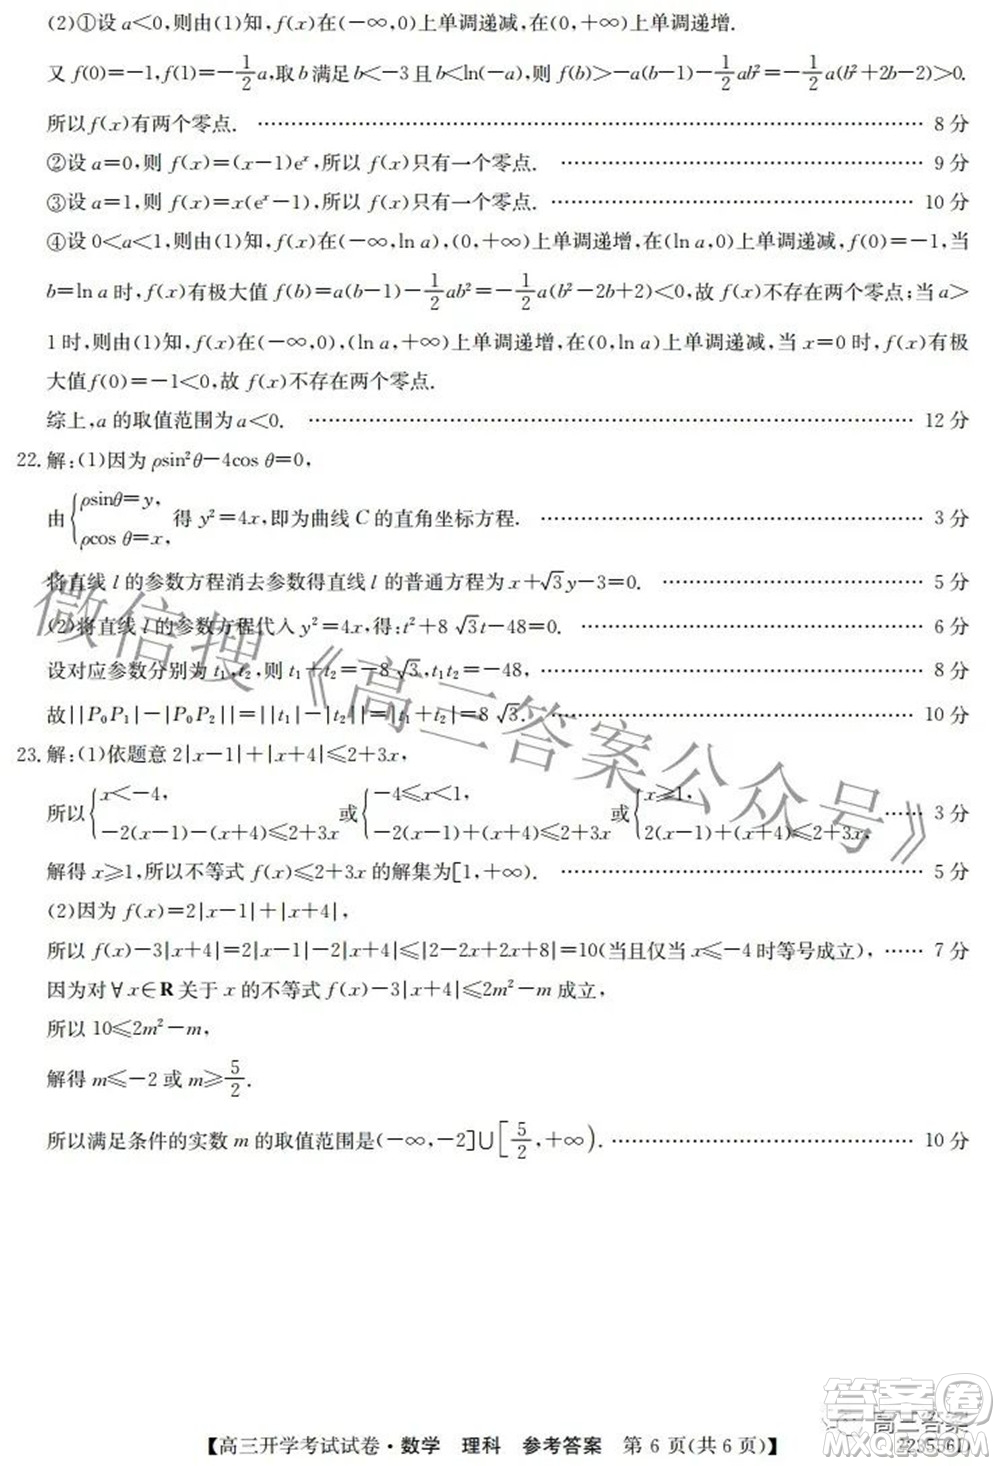 (2)①设 a<0,则由(1)知,f(x)在(-∞,0)上单调递减,在(0,+∞)上单调递增.
又 f(0)=-1,f(1)=-1/2a,取 b 满足 b<-3 且 b<ln(-a),则 f(b)>-a(b-1)-1/2ab²=-1/2a(b²+2b-2)>0.
所以 f(x)有两个零点. …… 8 分
②设 a=0,则 f(x)=(x-1)eˣ,所以 f(x)只有一个零点. …… 9 分
③设 a=1,则 f(x)=x(eˣ-1),所以 f(x)只有一个零点. …… 10 分
④设 0<a<1,则由(1)知,f(x)在(-∞,ln a),(0,+∞)上单调递增,在(ln a,0)上单调递减,f(0)=-1,当
b=ln a 时,f(x)有极大值 f(b)=a(b-1)-1/2ab²=-1/2a(b²-2b+2)<0,故 f(x)不存在两个零点;当 a>
1 时,则由(1)知,f(x)在(-∞,0),(ln a,+∞)上单调递增,在(0,ln a)上单调递减,当 x=0 时,f(x)有极
大值 f(0)=-1<0,故 f(x)不存在两个零点.
综上,a 的取值范围为 a<0. …… 12 分
22. 解:(1)因为 ρsin²θ-4cos θ=0,
由{ρsinθ=y, ρcos θ=x, 得 y²=4x,即为曲线 C 的直角坐标方程. …… 3 分
将直线 l 的参数方程消去参数得直线 l 的普通方程为 x+√3y-3=0. …… 5 分
(2)将直线 l 的参数方程代入 y²=4x,得:t²+8√3t-48=0. …… 6 分
设对应参数分别为 t₁,t₂,则 t₁+t₂=-8√3,t₁t₂=-48, …… 8 分
故||P₀P₁|-|P₀P₂||=||t₁|-|t₂||=|t₁+t₂|=8√3. …… 10 分
23. 解:(1)依题意 2|x-1|+|x+4|≤2+3x,
所以{x<-4, -2(x-1)-(x+4)≤2+3x 或{-4≤x<1, -2(x-1)+(x+4)≤2+3x 或{x≥1, 2(x-1)+(x+4)≤2+3x, …… 3 分
解得 x≥1,所以不等式 f(x)≤2+3x 的解集为[1,+∞). …… 5 分
(2)因为 f(x)=2|x-1|+|x+4|,
所以 f(x)-3|x+4|=2|x-1|-2|x+4|≤|2-2x+2x+8|=10(当且仅当 x≤-4 时等号成立), …… 7 分
因为对∀x∈R 关于 x 的不等式 f(x)-3|x+4|≤2m²-m 成立,
所以 10≤2m²-m,
解得 m≤-2 或 m≥5/2.
所以满足条件的实数 m 的取值范围是(-∞,-2]∪[5/2,+∞). …… 10 分
微信搜《高三答案公众号》
【高三开学考试试卷·数学 理科 参考答案 第 6 页(共 6 页)】
高三答案
223556D
答案圈
MXQE.COM